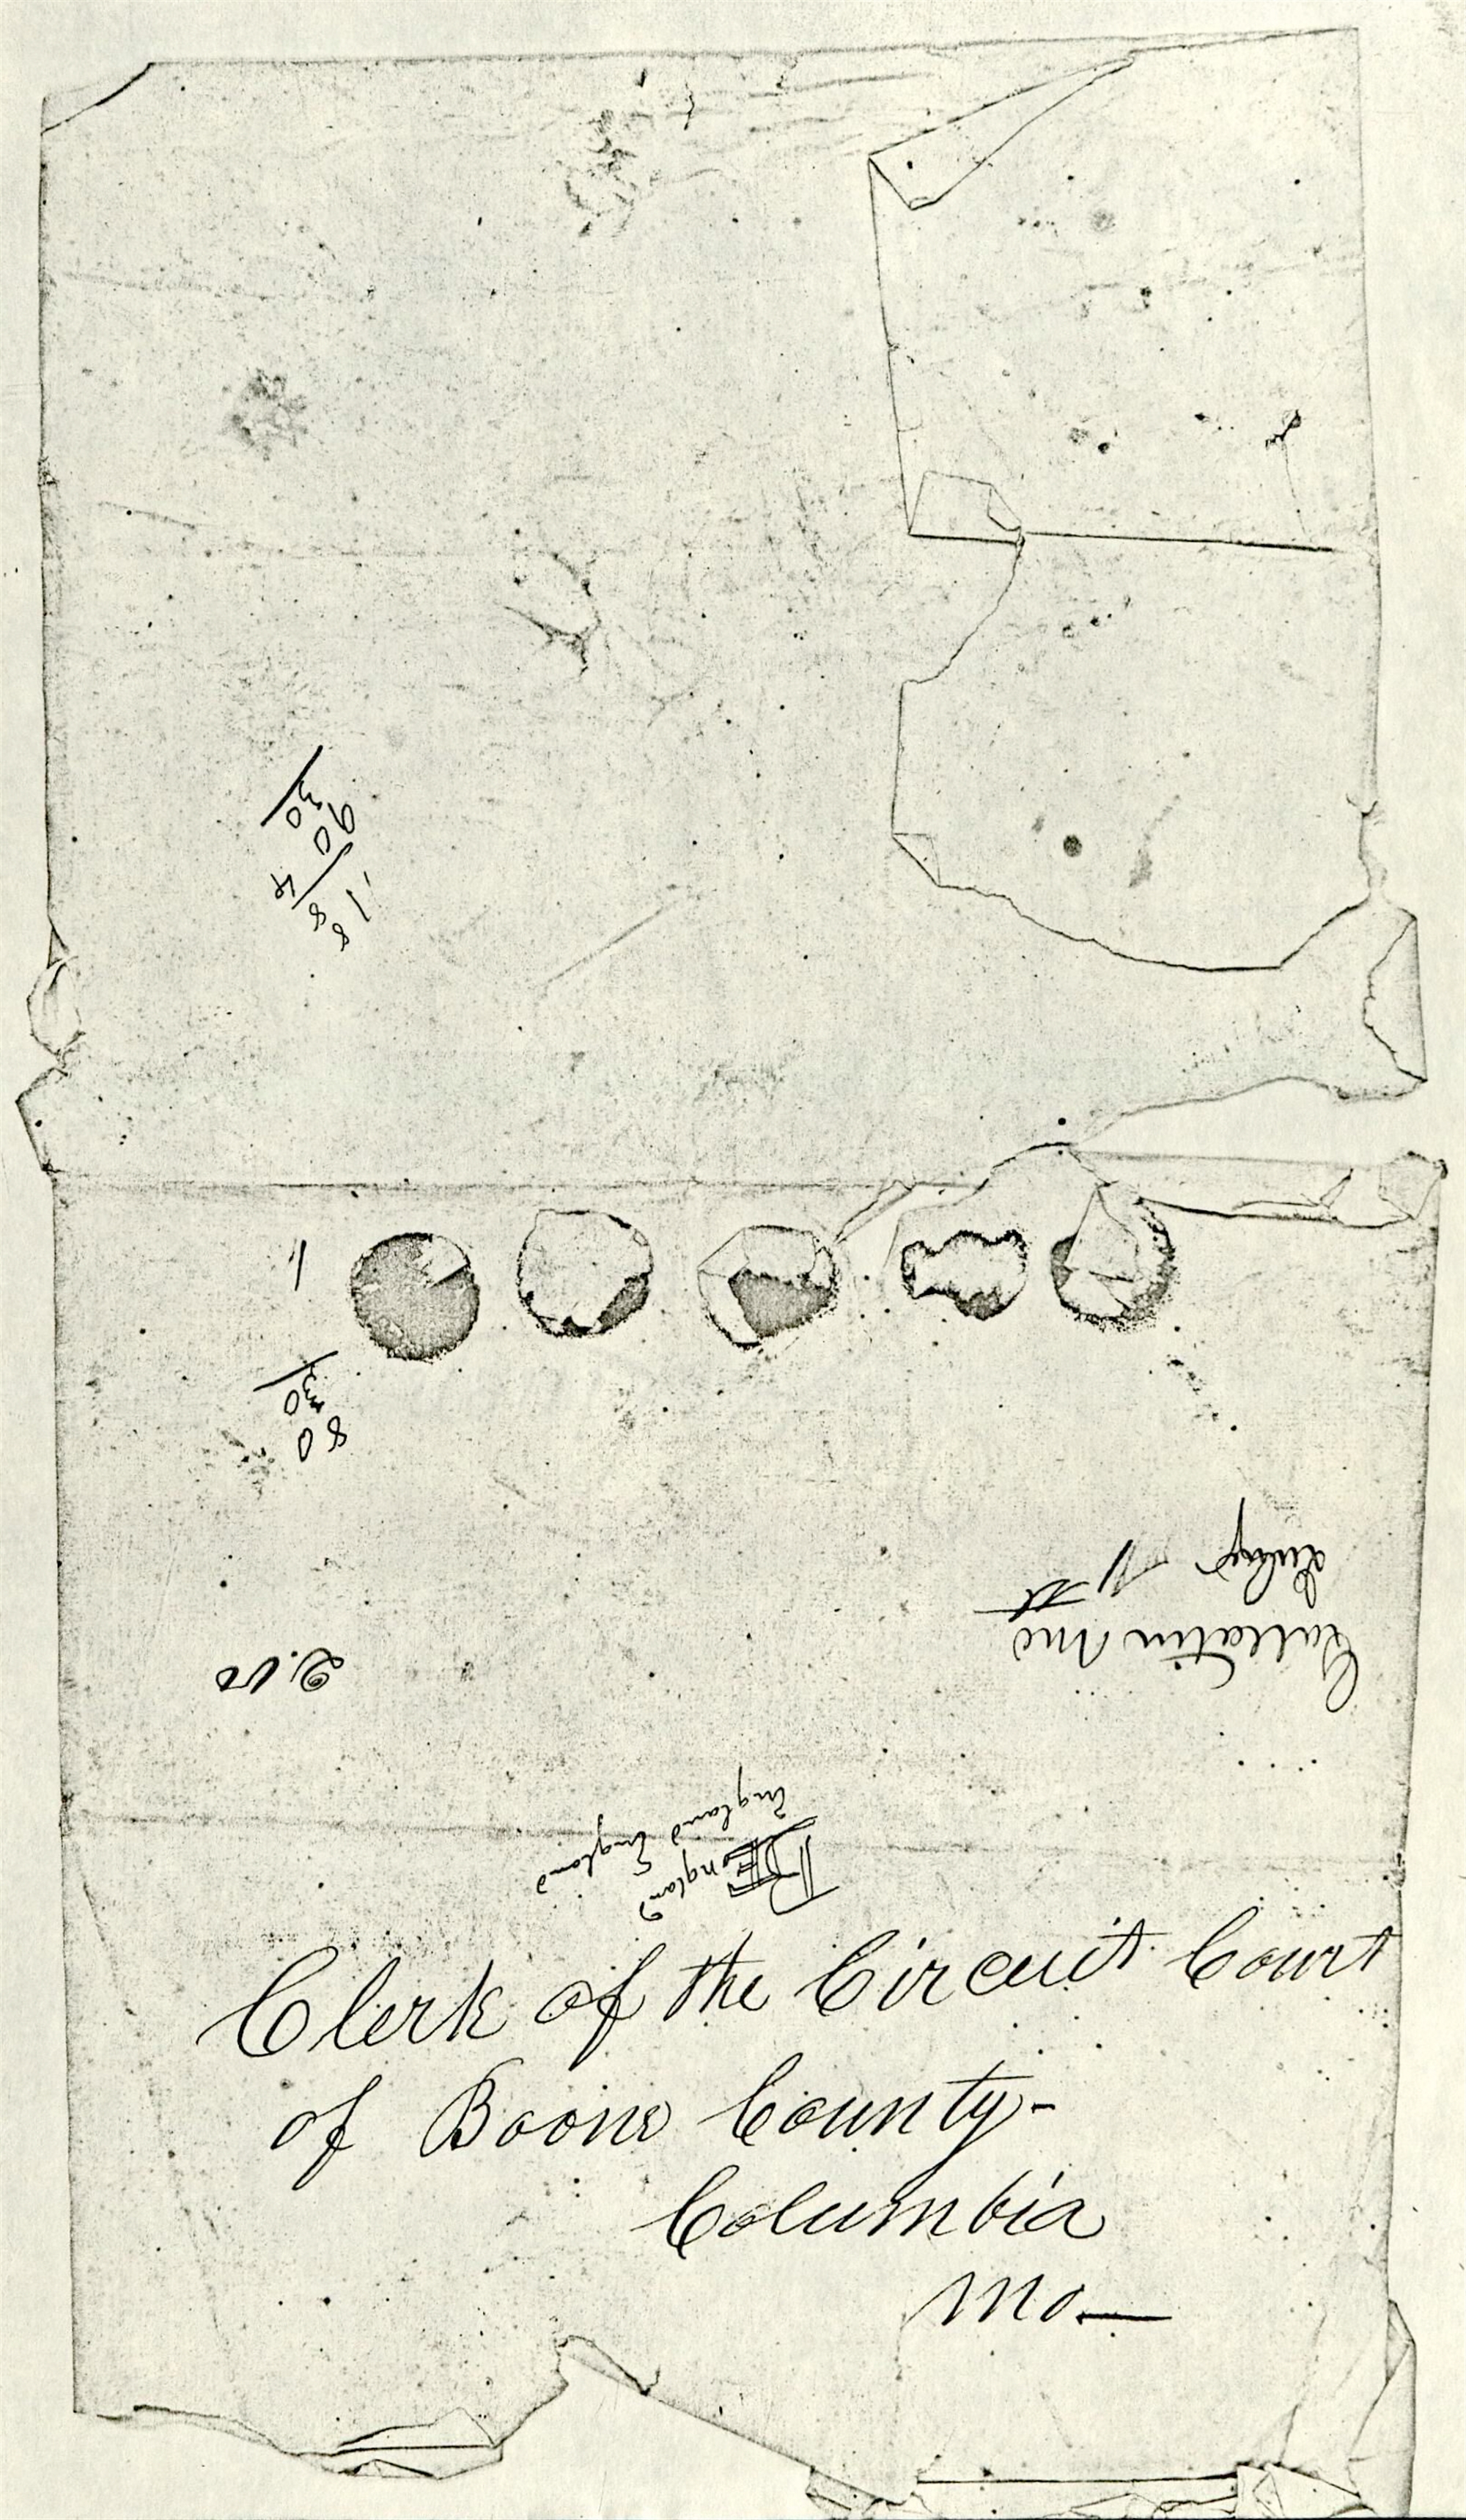 30
90
4
18
8 8
1
30
80
2.00
Gallatin Mo
July 11 st
England England
England
Clerk of the Circuit Court
of Boone County-
Columbia
Mo—